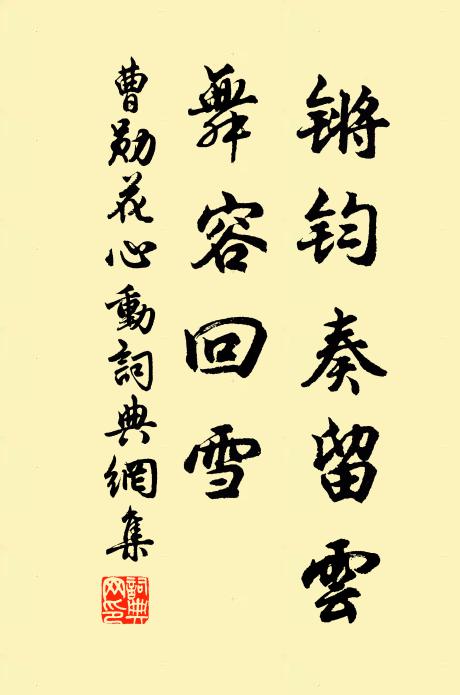 锵钧奏留雲
舞容回雪
曹勛花心動詞典網集
詞典网印